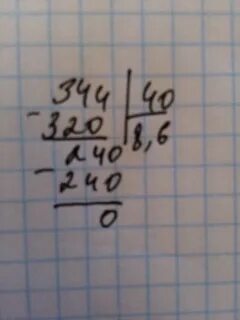 344 | 40
- 320 | 8,6
240
- 240
0